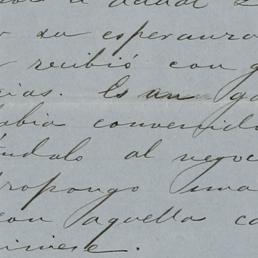 su esperanza
recibió con g
cias. Es un ga
abia convenido
éndolo al negoc
propongo una
con aquella co